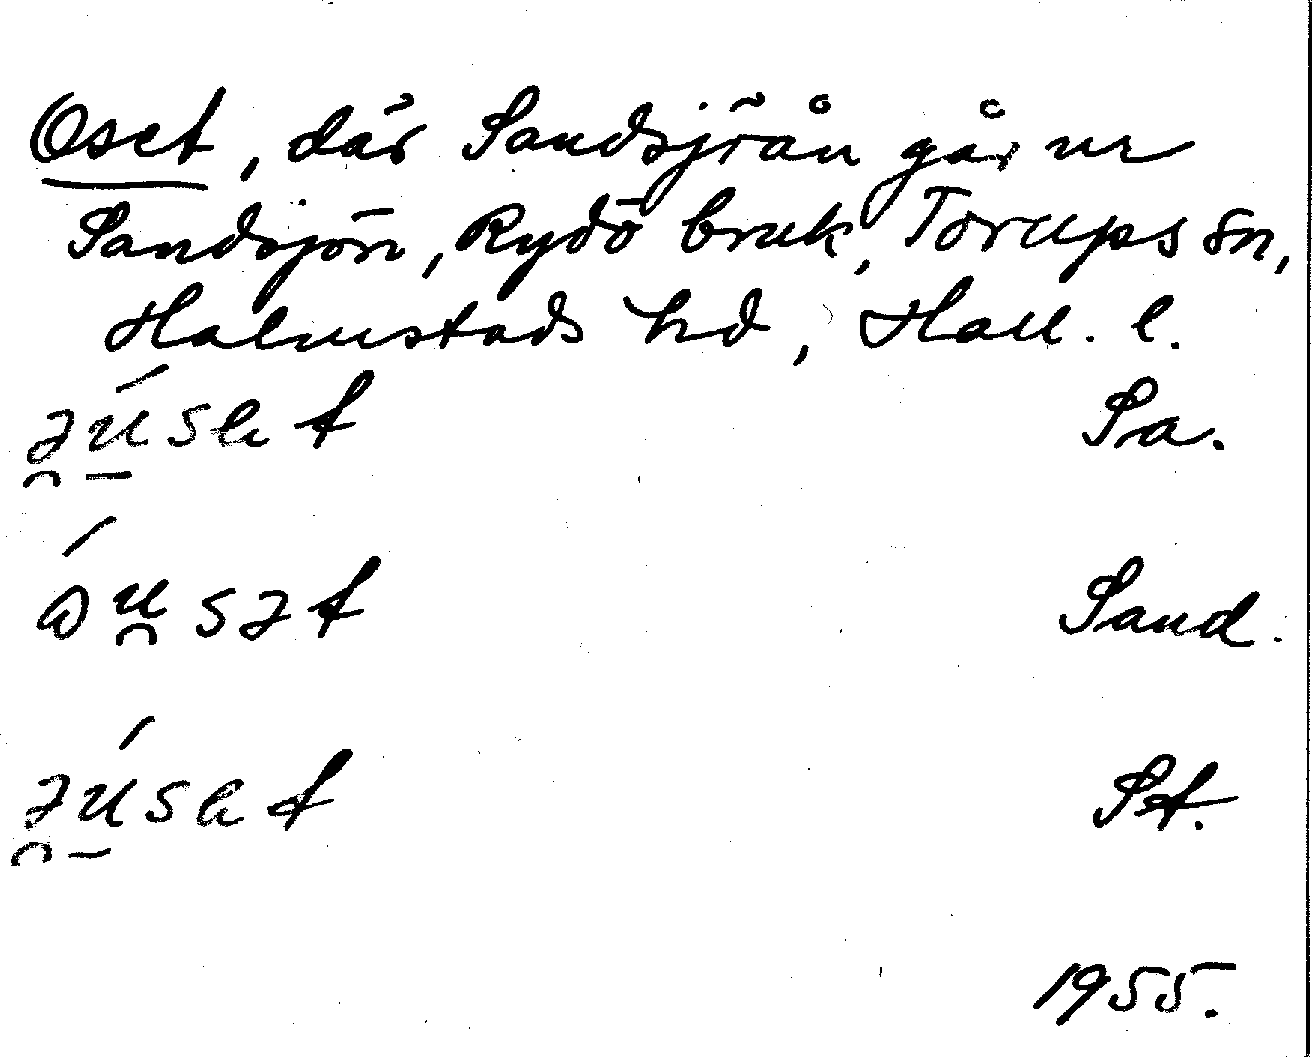 Oset, där Sandsjöån går ur
Sandsjön, Rydö bruk, Torups sn,
Halmstads hd, Hall. l.
ə̯ú̱sat Sa.
ɷ́u̯sət Sand.
ə̯ú̱sat St.
1955.